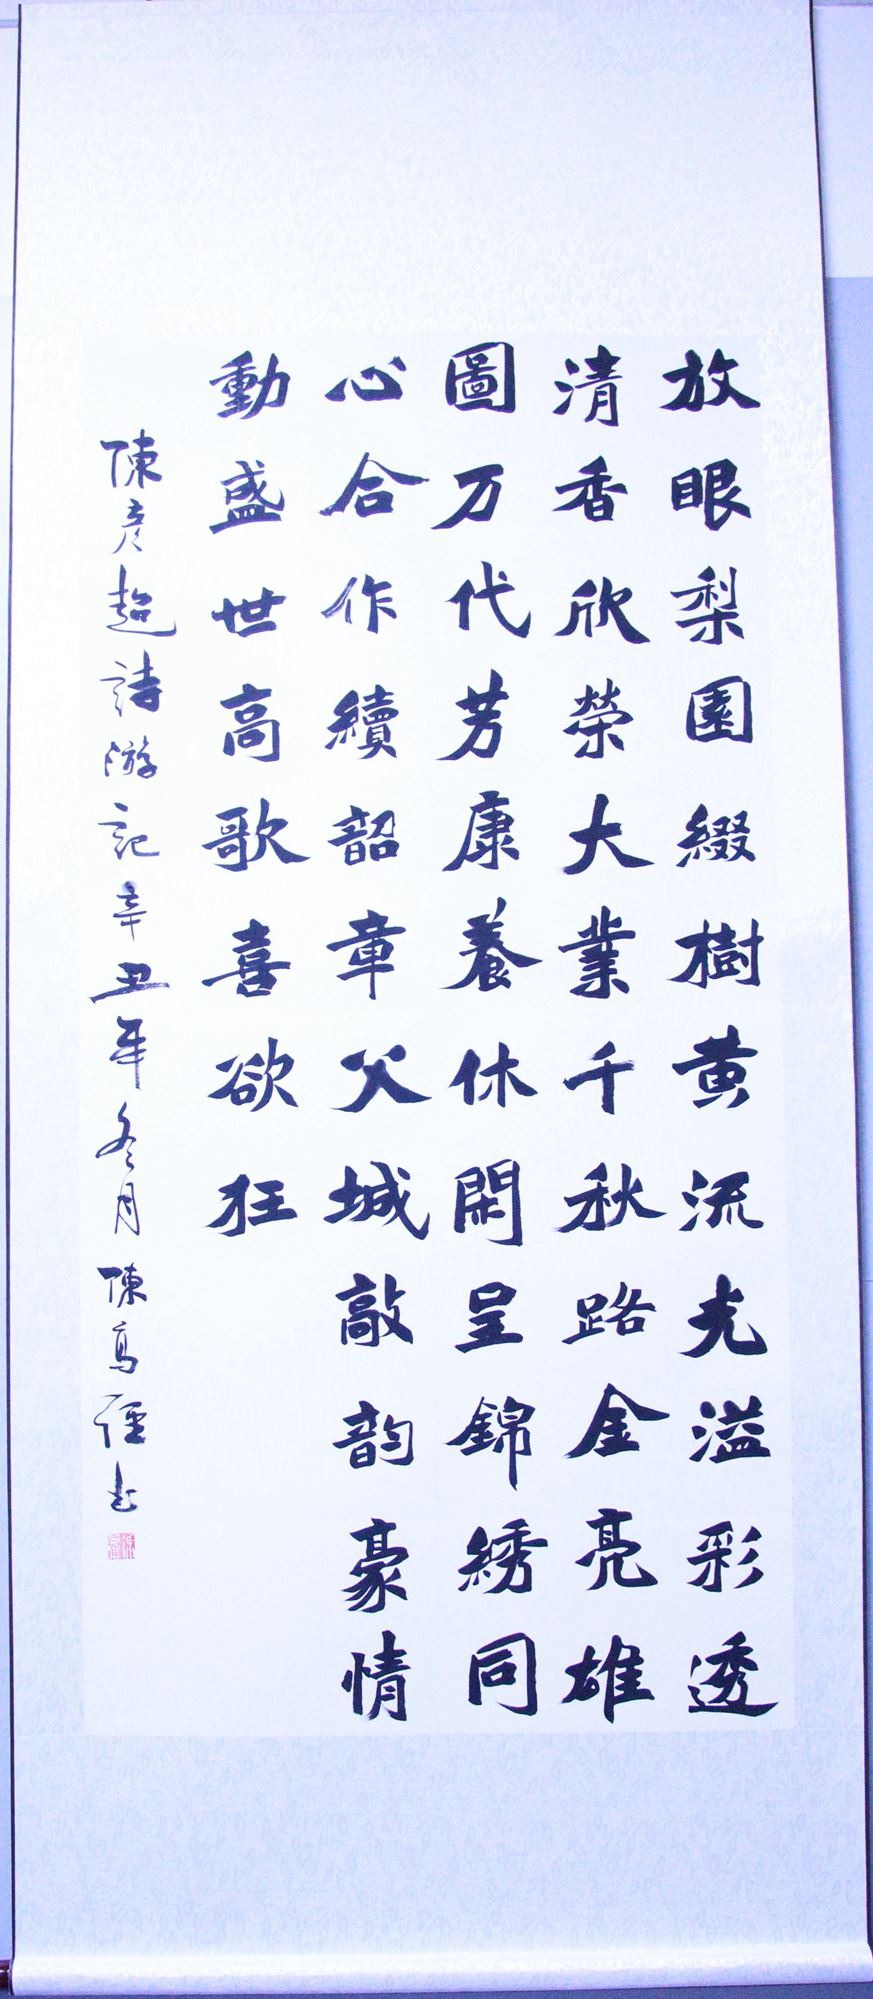 放眼梨園綴樹黄流光溢彩透
清香欣榮大業千秋路金亮雄
圖万代芳康養休閑呈錦綉同
心合作續韶章父城敲韵豪情
動盛世高歌喜欲狂
陳彦超詩游記辛丑年冬月陳高